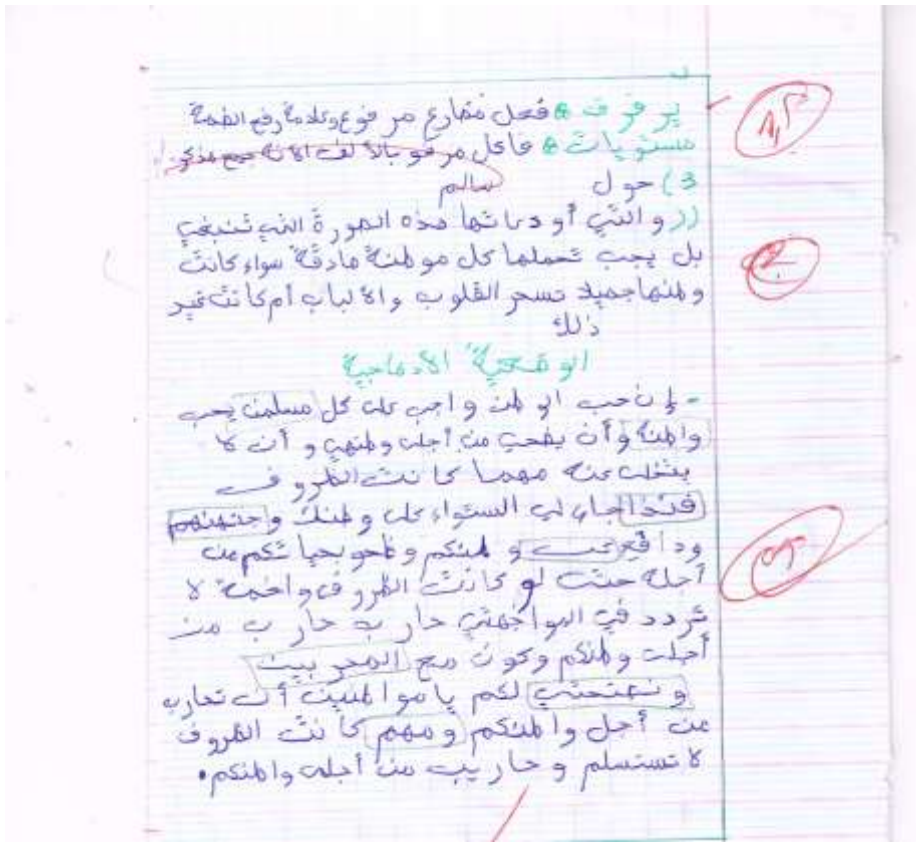 يرفرف * فعل مضارع مرفوع وعلامة رفع الظمة
مستويات * فاعل مرفو بالألف الأنه جمع مذكر
سالم
3) حول
((والتي أو دباتها هذه الصورة التي تنبغي
بل يجب تحملها كل موطنة صادقة سواء كانت
وطنها جميلا تسحر القلوب والألباب أم كانت غير
ذلك
الوضعية الأدماجية
- إن حب الوطن واجب على كل مسلمن يحب
واطنه وأن يضحي من أجلى وطنهي وأن لا
يتخلى عنه مهما كانت الظروف
على وطنك
ودافع عب وطنكم وظحو بحياتكم من
أجله حتى لو كانت الظروف واخمة لا
تردد في المواجهتي حارب حارب من
أجلى وطنكم وكون مع المحربين
ونهتحتي لكم يا مواطنين أن تحارب
عن أجل واطنكم ومهم كانت الظروف
لا تستسلم وحاريب من أجلى واطنكم.